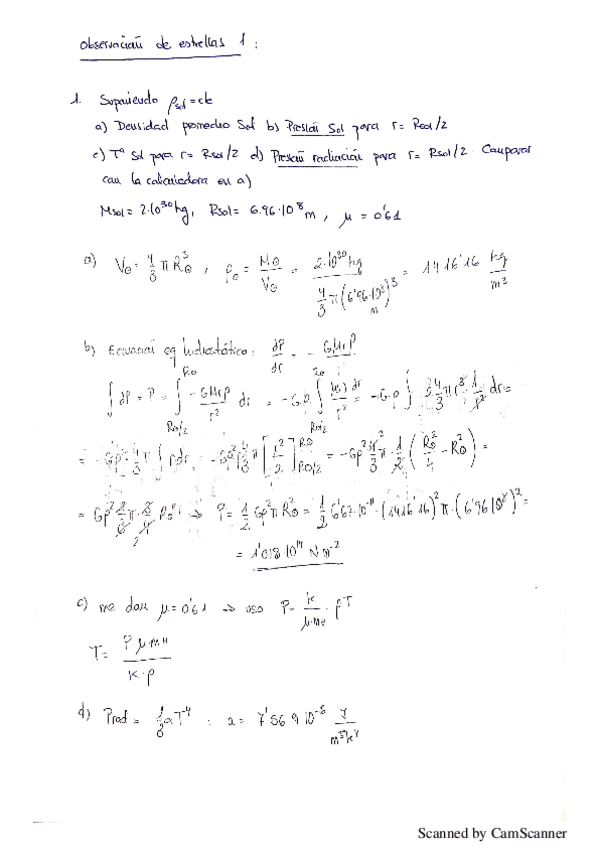 Observación de estrellas 1:
1. Suponiendo ρsol = cte
a) Densidad promedio Sol b) Presión Sol para r = Rsol/2
c) Tª Sol para r = Rsol/2 d) Presión radiación para r = Rsol/2. Comparar
con la calculadora en a)
Msol = 2·10³⁰ kg, Rsol = 6.96·10⁸ m, μ = 0'61
a) V⊙ = 4/3 π R⊙³ ; ρ⊙ = M⊙/V⊙ = 2·10³⁰ kg / (4/3 π (6'96·10⁸)³ m) = 1416'16 kg/m³
b) Ecuación eq hidrostático: dP/dr = - GMrρ
∫ dP = P = ∫ - GMrρ/r² dr = -G·ρ ∫ dr / r² = -G·ρ ∫ 4/3 π r³ · 1/r² dr =
= -Gρ² · 4/3 π ∫ r dr = -Gρ² 4/3 π [r²/2] R⊙ R⊙/2 = -Gρ² 4/3 π · 1/2 (R⊙²/4 - R⊙²) =
= Gρ² π · R⊙² → P = 1/2 Gρ² π R⊙² = 1/2 6'67·10⁻¹¹ · (1416'16)² π · (6'96·10⁸)² =
= 1'018·10¹⁴ N m⁻²
c) me dan μ = 0'61 → uso P = k/(μ·mH) · ρT
T = P μ·mH / (k·ρ)
d) Prad = 1/3 aT⁴ : a = 7'569·10⁻¹⁶ J/(m³k⁴)
Scanned by CamScanner